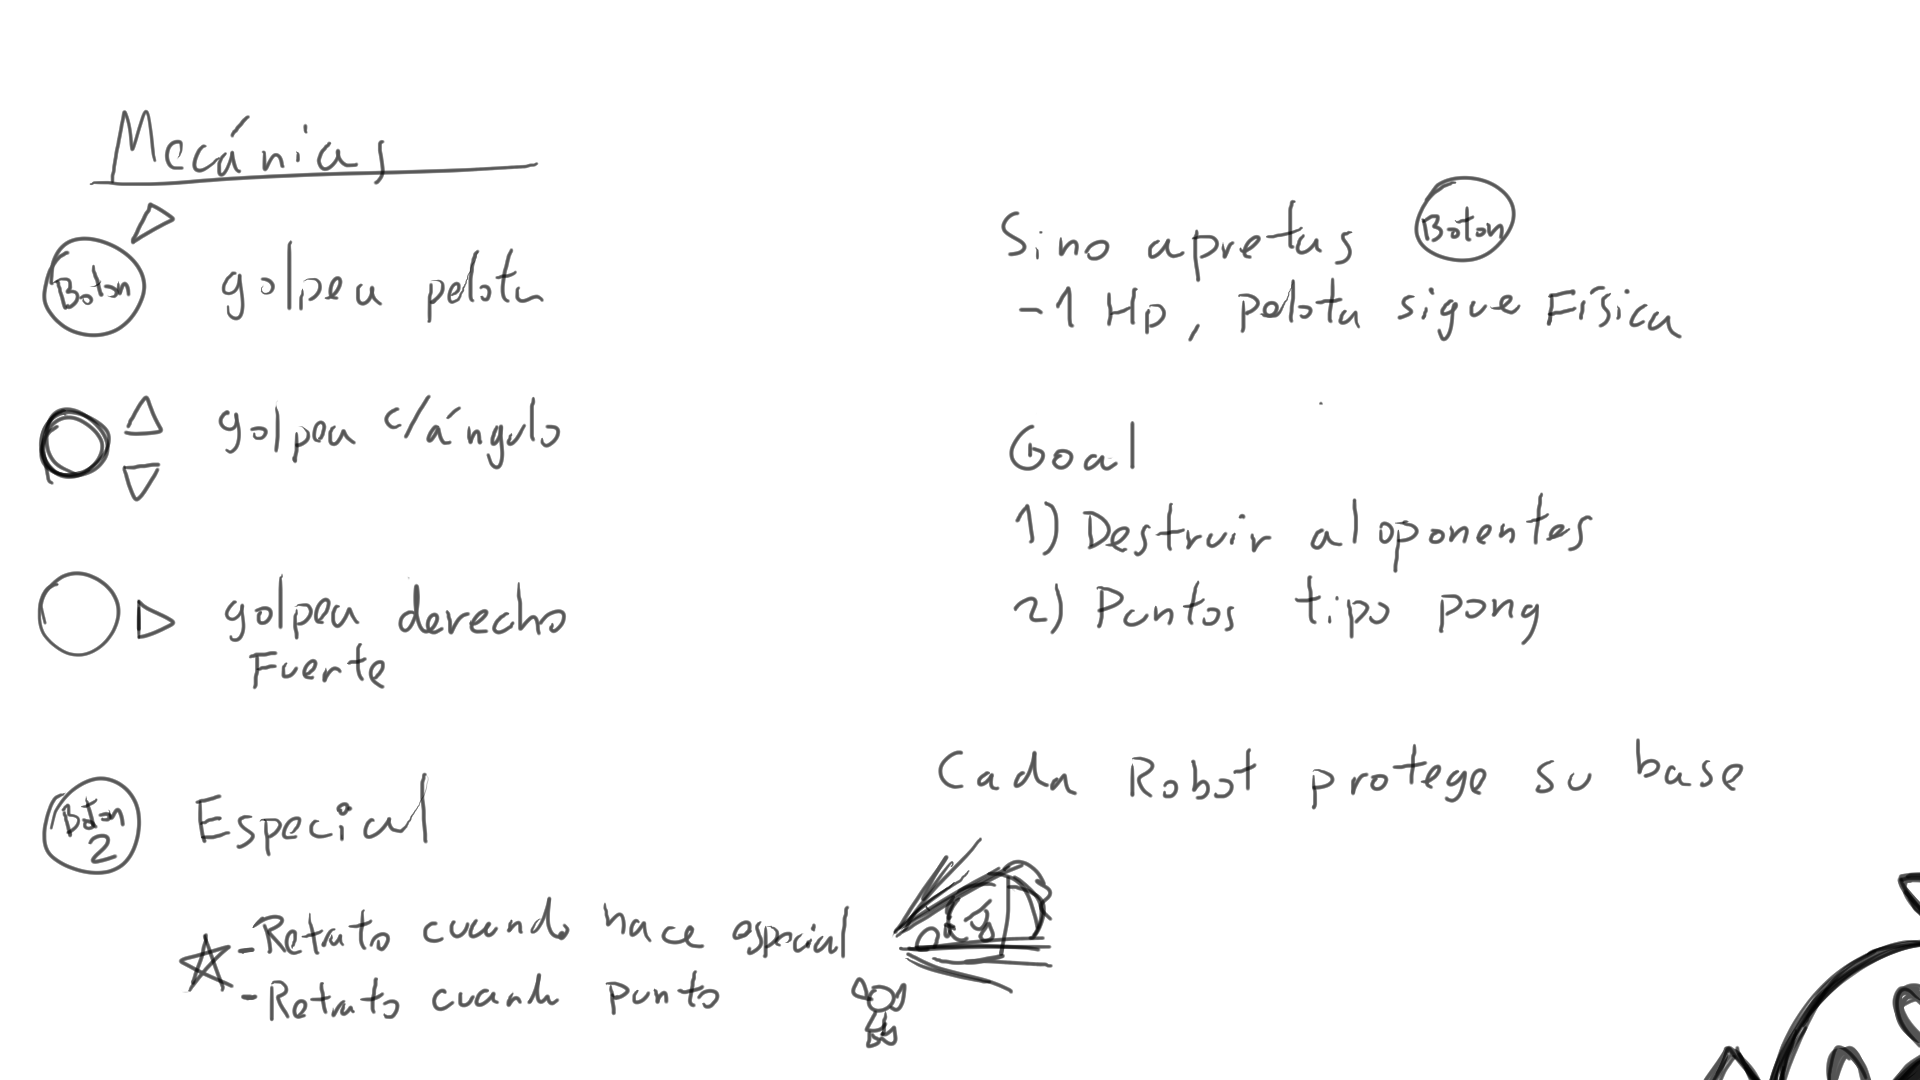 Mecánias
Boton golpea pelota
golpea c/ángulo
golpea derecho
Fuerte
Boton
2 Especial
- Retrato cuando hace especial
- Retrato cuando punto
Sino apretas Boton
-1 Hp, pelota sigue Física
Goal
1) Destruir al oponentes
2) Puntos tipo pong
Cada Robot protege su base